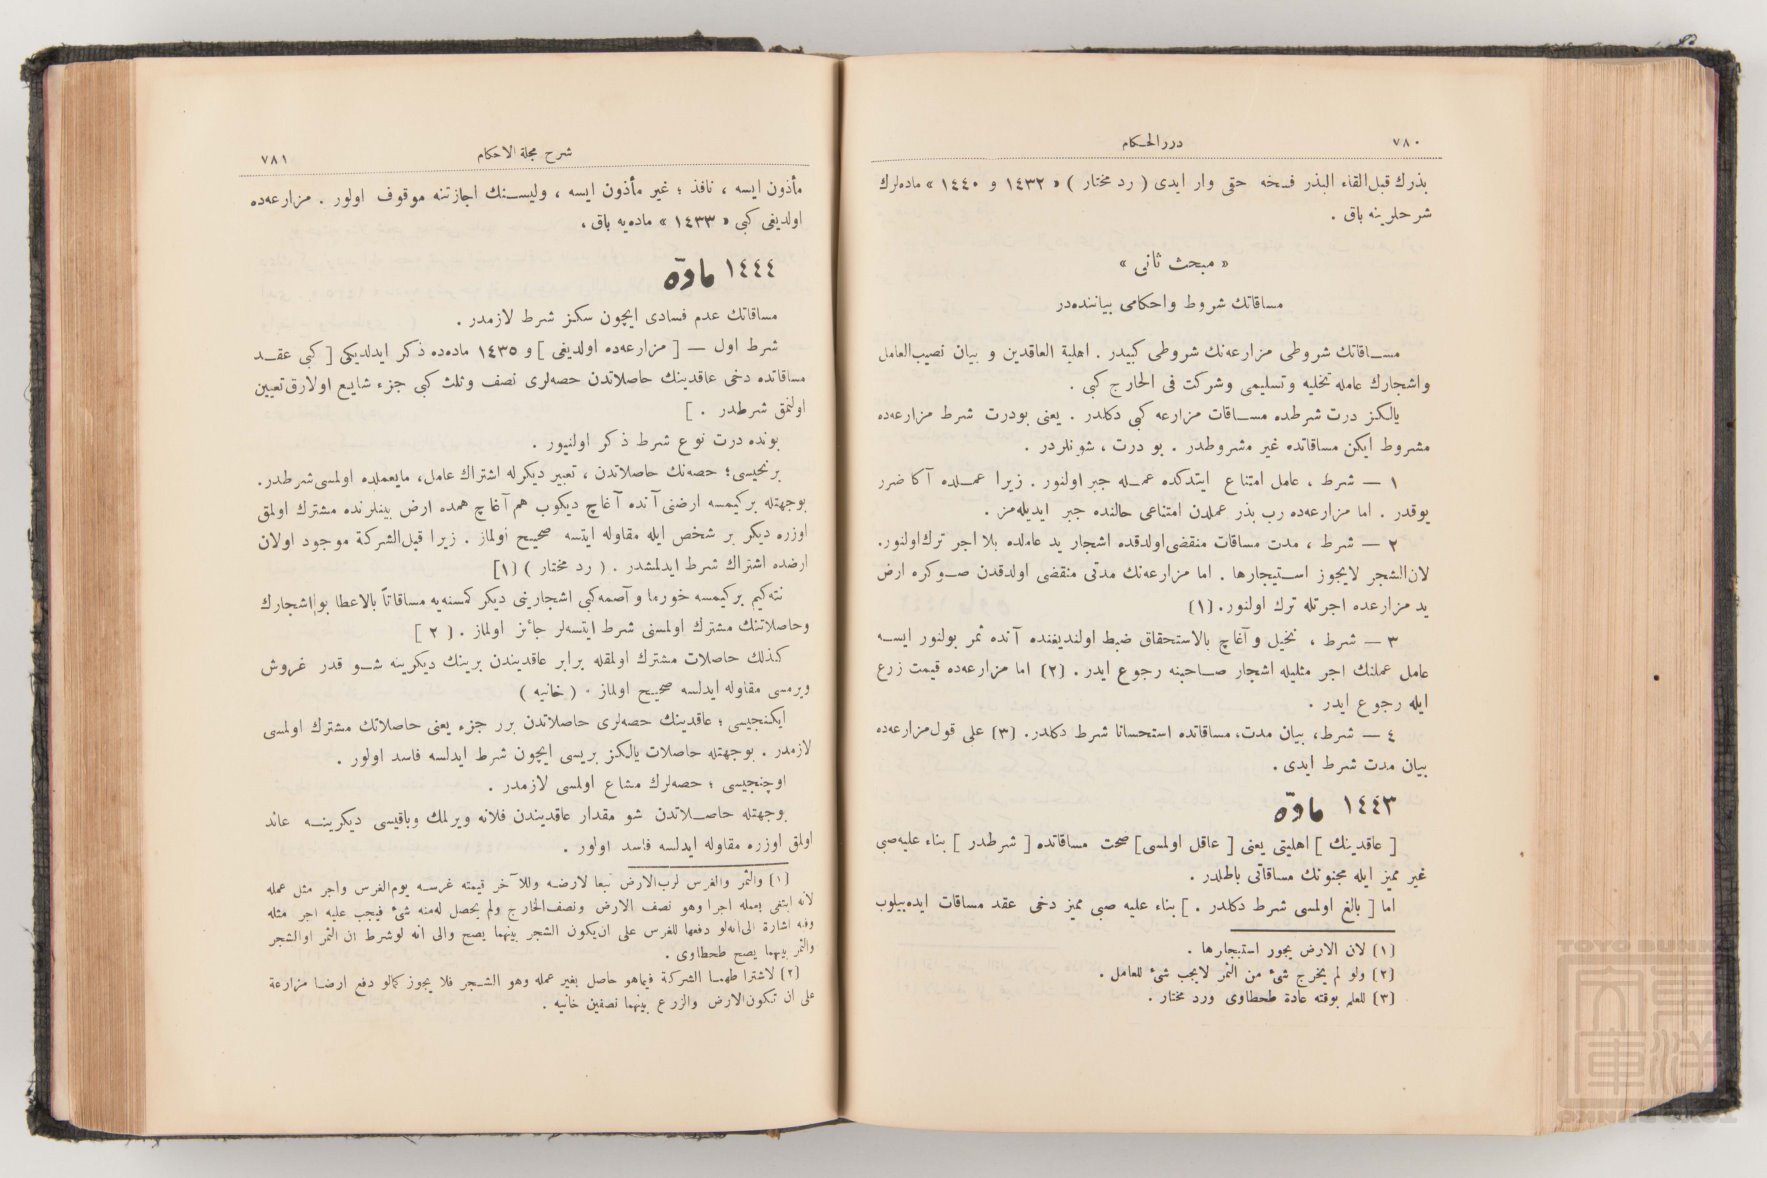 ٧٨٠
درر الحـكام
بذرك قبل القاء البذر فسخه حقى وار ايدى ( رد مختار ) « ١٤٣٢ و ١٤٤٠ » ماده‌لرك
شرحلرينه باق .
« مبحث ثانى »
مساقاتك شروط واحكامى بياننده‌در
مسـاقاتك شروطى مزارعه‌نك شروطى كبيدر . اهلية العاقدين و بيان نصيب‌العامل
واشجارك عامله تخليه وتسليمى وشركت فى الخارج كبى .
يالكز درت شرطده مسـاقات مزارعه كبى دكلدر . يعنى بودرت شرط مزارعه‌ده
مشروط ايكن مساقاتده غير مشروطدر . بو درت ، شونلردر .
١ — شرط ، عامل امتناع ايتدكده عمـله جبر اولنور . زيرا عمـلده آكا ضرر
يوقدر . اما مزارعه‌ده رب بذر عملدن امتناعى حالنده جبر ايديله‌مز .
٢ — شرط ، مدت مساقات منقضى‌اولدقده اشجار يد عاملده بلا اجر ترك‌اولنور.
لان‌الشجر لايجوز اسـتيجارها . اما مزارعه‌نك مدتى منقضى اولدقدن صـوكره ارض
يد مزارعده اجرتله ترك اولنور. (١)
٣ — شرط ، نخيل و آغاچ بالاستحقاق ضبط اولنديغنده آنده ثمر بولنور ايسـه
عامل عملنك اجر مثليله اشجار صـاحبنه رجوع ايدر . (٢) اما مزارعه‌ده قيمت زرع
ايله رجوع ايدر .
٤ — شرط، بيان مدت، مساقاتده استحسانا شرط دكلدر. (٣) على قول‌مزارعه‌ده
بيان مدت شرط ايدى .
١٤٤٣ مادّه
[ عاقدينك ] اهليتى يعنى [ عاقل اولمسى] صحت مساقاتده [ شرطدر ] بناء عليه‌صبى
غير مميز ايله مجنونك مساقاتى باطلدر .
اما [ بالغ اولمسى شرط دكلدر . ] بناء عليه صبى مميز دخى عقد مساقات ايده‌بيلوب
(١) لان الارض يجوز استيجارها .
(٢) ولو لم يخرج شئ من الثمر لايجب شئ للعامل .
(٣) للعلم بوقته عادة طحطاوى ورد مختار .
شرح مجلة الاحكام
٧٨١
مأذون ايسه ، نافذ ؛ غير مأذون ايسه ، وليسـنك اجازتنه موقوف اولور . مزارعه‌ده
اولديغى كبى « ١٤٣٣ » ماده‌يه باق .
١٤٤٤ مادّه
مساقاتك عدم فسادى ايچون سكز شرط لازمدر .
شرط اول — [ مزارعه‌ده اولديغى ] و ١٤٣٥ ماده‌ده ذكر ايدلديكى [ كبى عقـد
مساقاتده دخى عاقدينك حاصلاتدن حصه‌لرى نصف وثلث كبى جزء شايع اولارق‌تعيين
اولنمق شرطدر . ]
بونده درت نوع شرط ذكر اولنيور .
برنجيسى؛ حصه‌نك حاصلاتدن ، تعبير ديكرله اشتراك عامل، مايعملده اولمسى‌شرطدر.
بوجهتله بركيمسه ارضنى آنده آغاچ ديكوب هم آغاچ همده ارض بينلرنده مشترك اولمق
اوزره ديكر بر شخص ايله مقاوله ايتسه صحيح اولماز . زيرا قبل‌الشركة موجود اولان
ارضده اشتراك شرط ايدلمشدر . ( رد مختار ) (١]
نته‌كيم بركيمسه خورما و آصمه‌كبى اشجارينى ديكر كمسنه‌يه مساقاتاً بالاعطا بواشجارك
وحاصلاتنك مشترك اولمسنى شرط ايتسه‌لر جائز اولماز . ( ٢ ]
كذلك حاصلات مشترك اولمقله برابر عاقديندن برينك ديكرينه شـو قدر غروش
ويرمسى مقاوله ايدلسه صحيح اولماز . ( خانيه )
ايكنجيسى ؛ عاقدينك حصه‌لرى حاصلاتدن برر جزء يعنى حاصلاتك مشترك اولمسى
لازمدر . بوجهتله حاصلات يالكز بريسى ايچون شرط ايدلسه فاسد اولور .
اوچنجيسى ؛ حصه‌لرك مشاع اولمسى لازمدر .
بوجهتله حاصـلاتدن شو مقدار عاقديندن فلانه ويرلمك وباقيسى ديكرينـه عائد
اولمق اوزره مقاوله ايدلسه فاسد اولور .
(١) والثمر والغرس لرب‌الارض تبعا لارضه وللآخر قيمته غرسـه يوم‌الغرس واجر مثل عمله
لانه ابتغى بعمله اجرا وهو نصف الارض ونصف‌الخارج ولم يحصل له‌منه شئ فيجب عليه اجر مثله
وفيه اشارة الى‌انه‌لو دفعها للغرس على ان‌يكون الشجر بينهما يصح والى انه لوشرط ان الثمر اوالشجر
والثمر بينهما يصح طحطاوى .
(٢) لاشتراطهمـا الشركة فيماهو حاصل بغير عمله وهو الشـجر فلا يجوز كمالو دفع ارضا مزارعة
على ان تكون‌الارض والزرع بينهما نصفين خانيه .
TOYO BUNKO